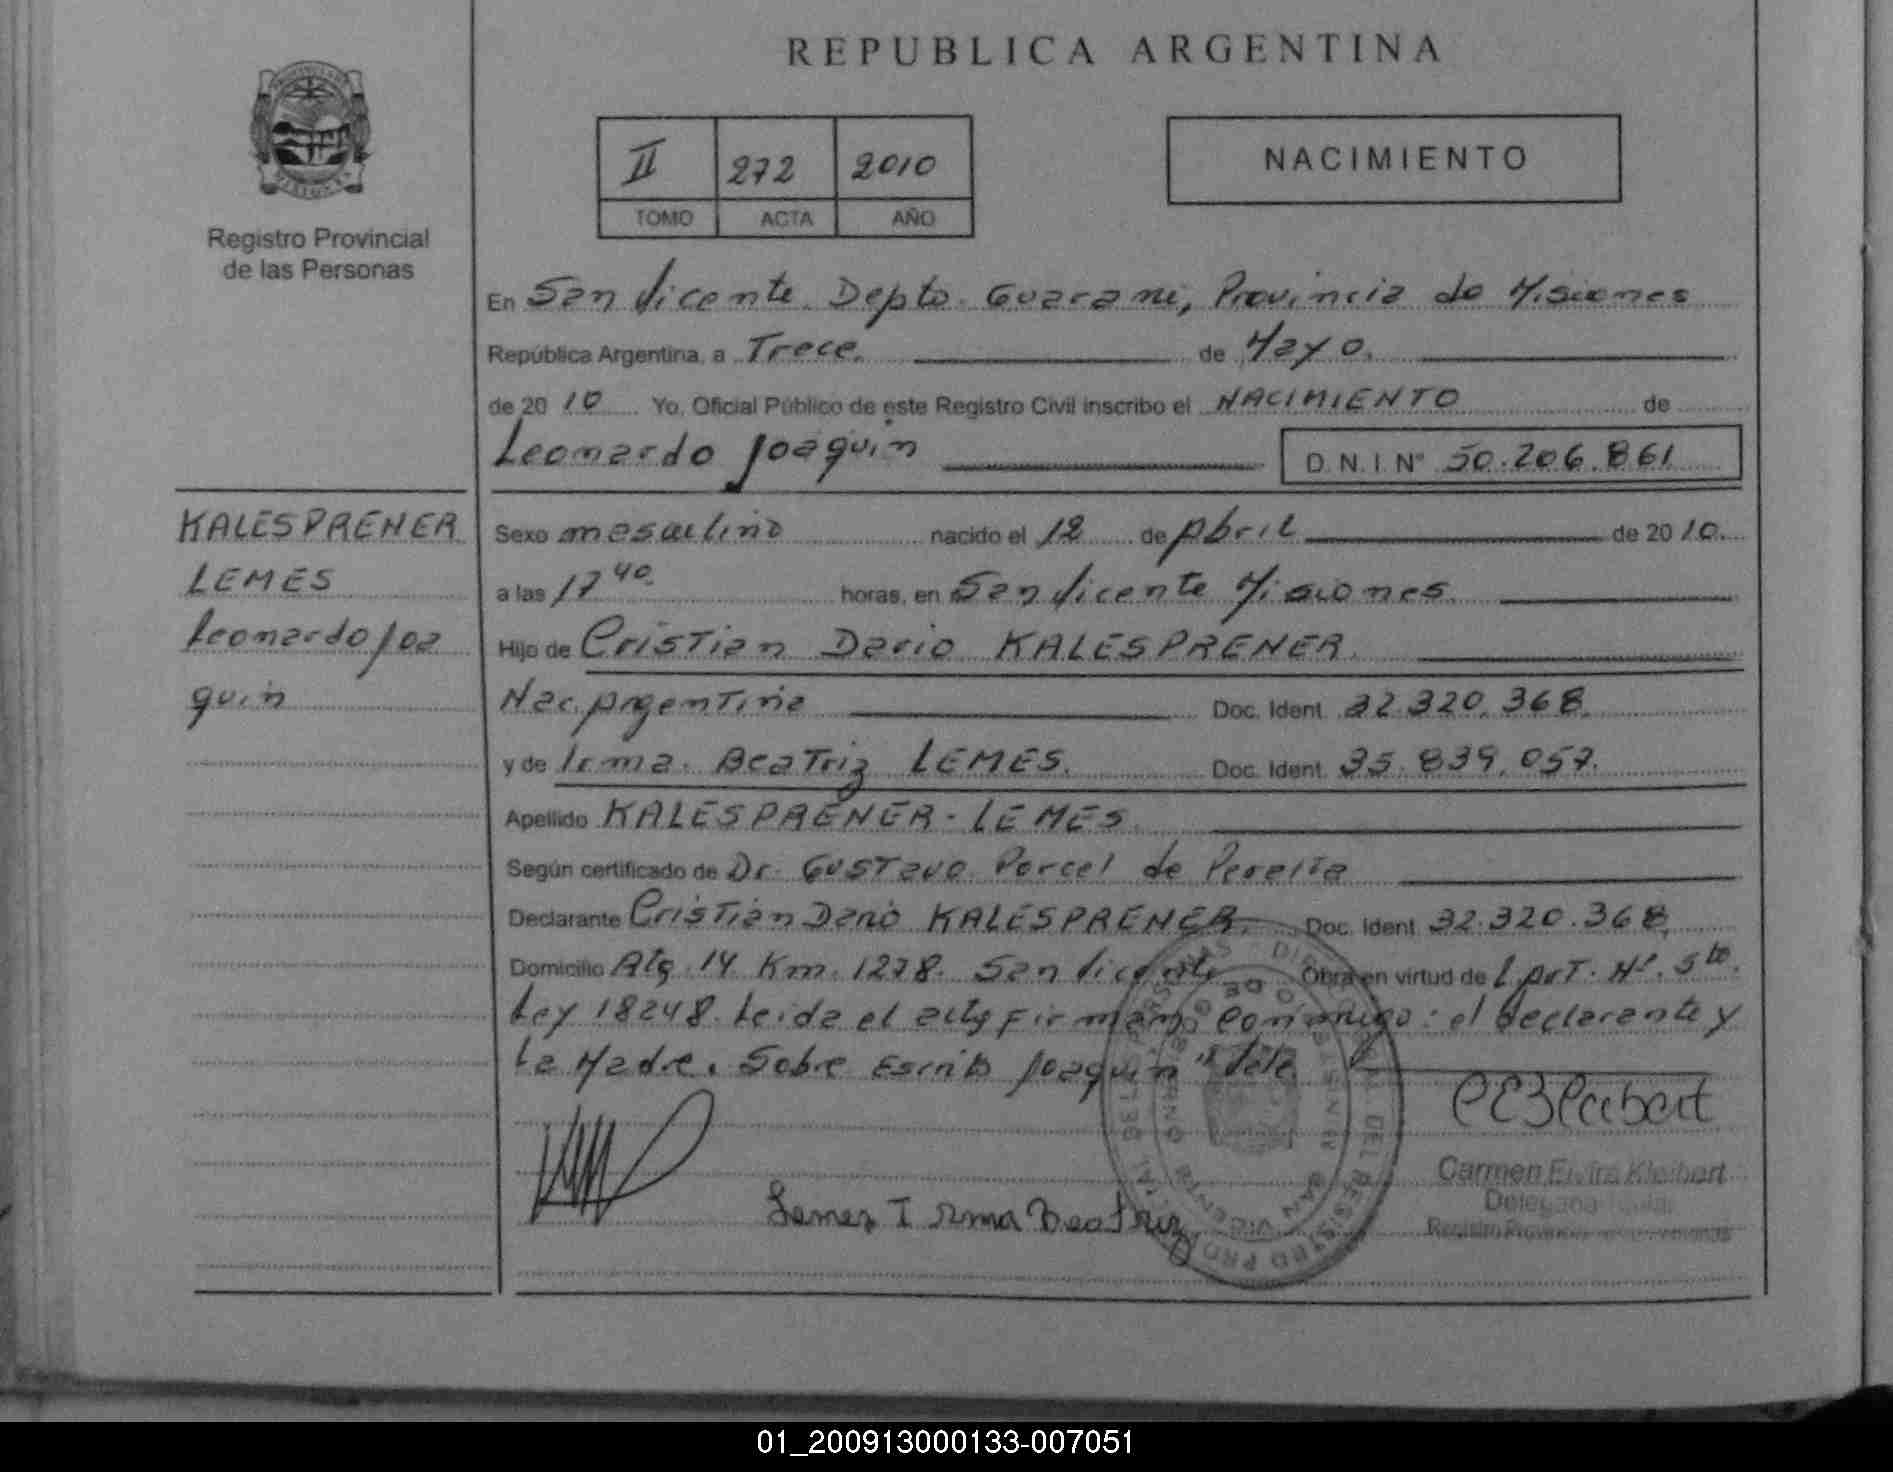 REPUBLICA ARGENTINA
II 272 2010
TOMO ACTA AÑO
NACIMIENTO
Registro Provincial
de las Personas
En San Vicente Depto. Guarani, Provincia de Misiones
República Argentina, a Trece. de Mayo.
de 2010 Yo, Oficial Público de este Registro Civil inscribo el NACIMIENTO de
Leonardo Joaquin D.N.I. Nº 50.206.861
KALESPRENER
LEMES
Leonardo Joa
quin
Sexo masculino nacido el 12 de Abril de 2010.
a las 17 40. horas, en San Vicente Misiones.
Hijo de Cristian Dario KALESPRENER.
Nac. Argentina Doc. Ident. 32.320.368.
y de Irma. Beatriz LEMES. Doc. Ident. 35.839.057.
Apellido KALESPRENER - LEMES.
Según certificado de Dr. Gustavo Porcel de Peralta
Declarante Cristian Dario KALESPRENER. Doc. Ident. 32.320.368.
Domicilio 14 Km. 1278. San Vicente Obra en virtud de Art. Nº. 5to.
Ley 18248. Leida el acta firman conmigo: el declarante y
La Madre. Sobre Escrito Joaquin "Vale
Lemes Irma Beatriz
Carmen Elvira Kleibert
Delegada Titular
Registro Provincial de las Personas
DEL REGISTRO PROVINCIAL DE LAS PERSONAS
SAN VICENTE
01_200913000133-007051